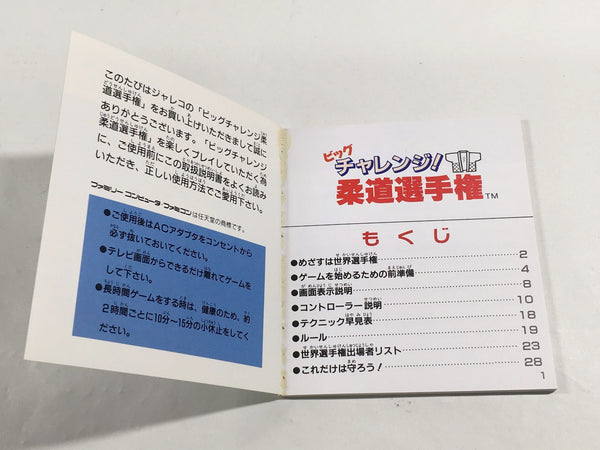 このたびはジャレコの「ビッグチャレンジ柔
道選手権」をお買い上げいただきまして誠に
ありがとうございます。「ビッグチャレンジ
柔道選手権」を楽しくプレイしていただく為
に、ご使用前にこの取扱説明書をよくお読み
いただき、正しい使用方法でご愛用下さい。
ファミリーコンピュータ・ファミコンは任天堂の商標です。
●ご使用後はACアダプタをコンセントから
必ず抜いておいてください。
●テレビ画面からできるだけ離れてゲームを
して下さい。
●長時間ゲームをする時は、健康のため、約
2時間ごとに10分〜15分の小休止をしてく
ださい。
ビッグ
チャレンジ!
柔道選手権TM
もくじ
●めざすは世界選手権 2
●ゲームを始めるための前準備 4
●画面表示説明 8
●コントローラー説明 10
●テクニック早見表 18
●ルール 19
●世界選手権出場者リスト 23
●これだけは守ろう! 28
1